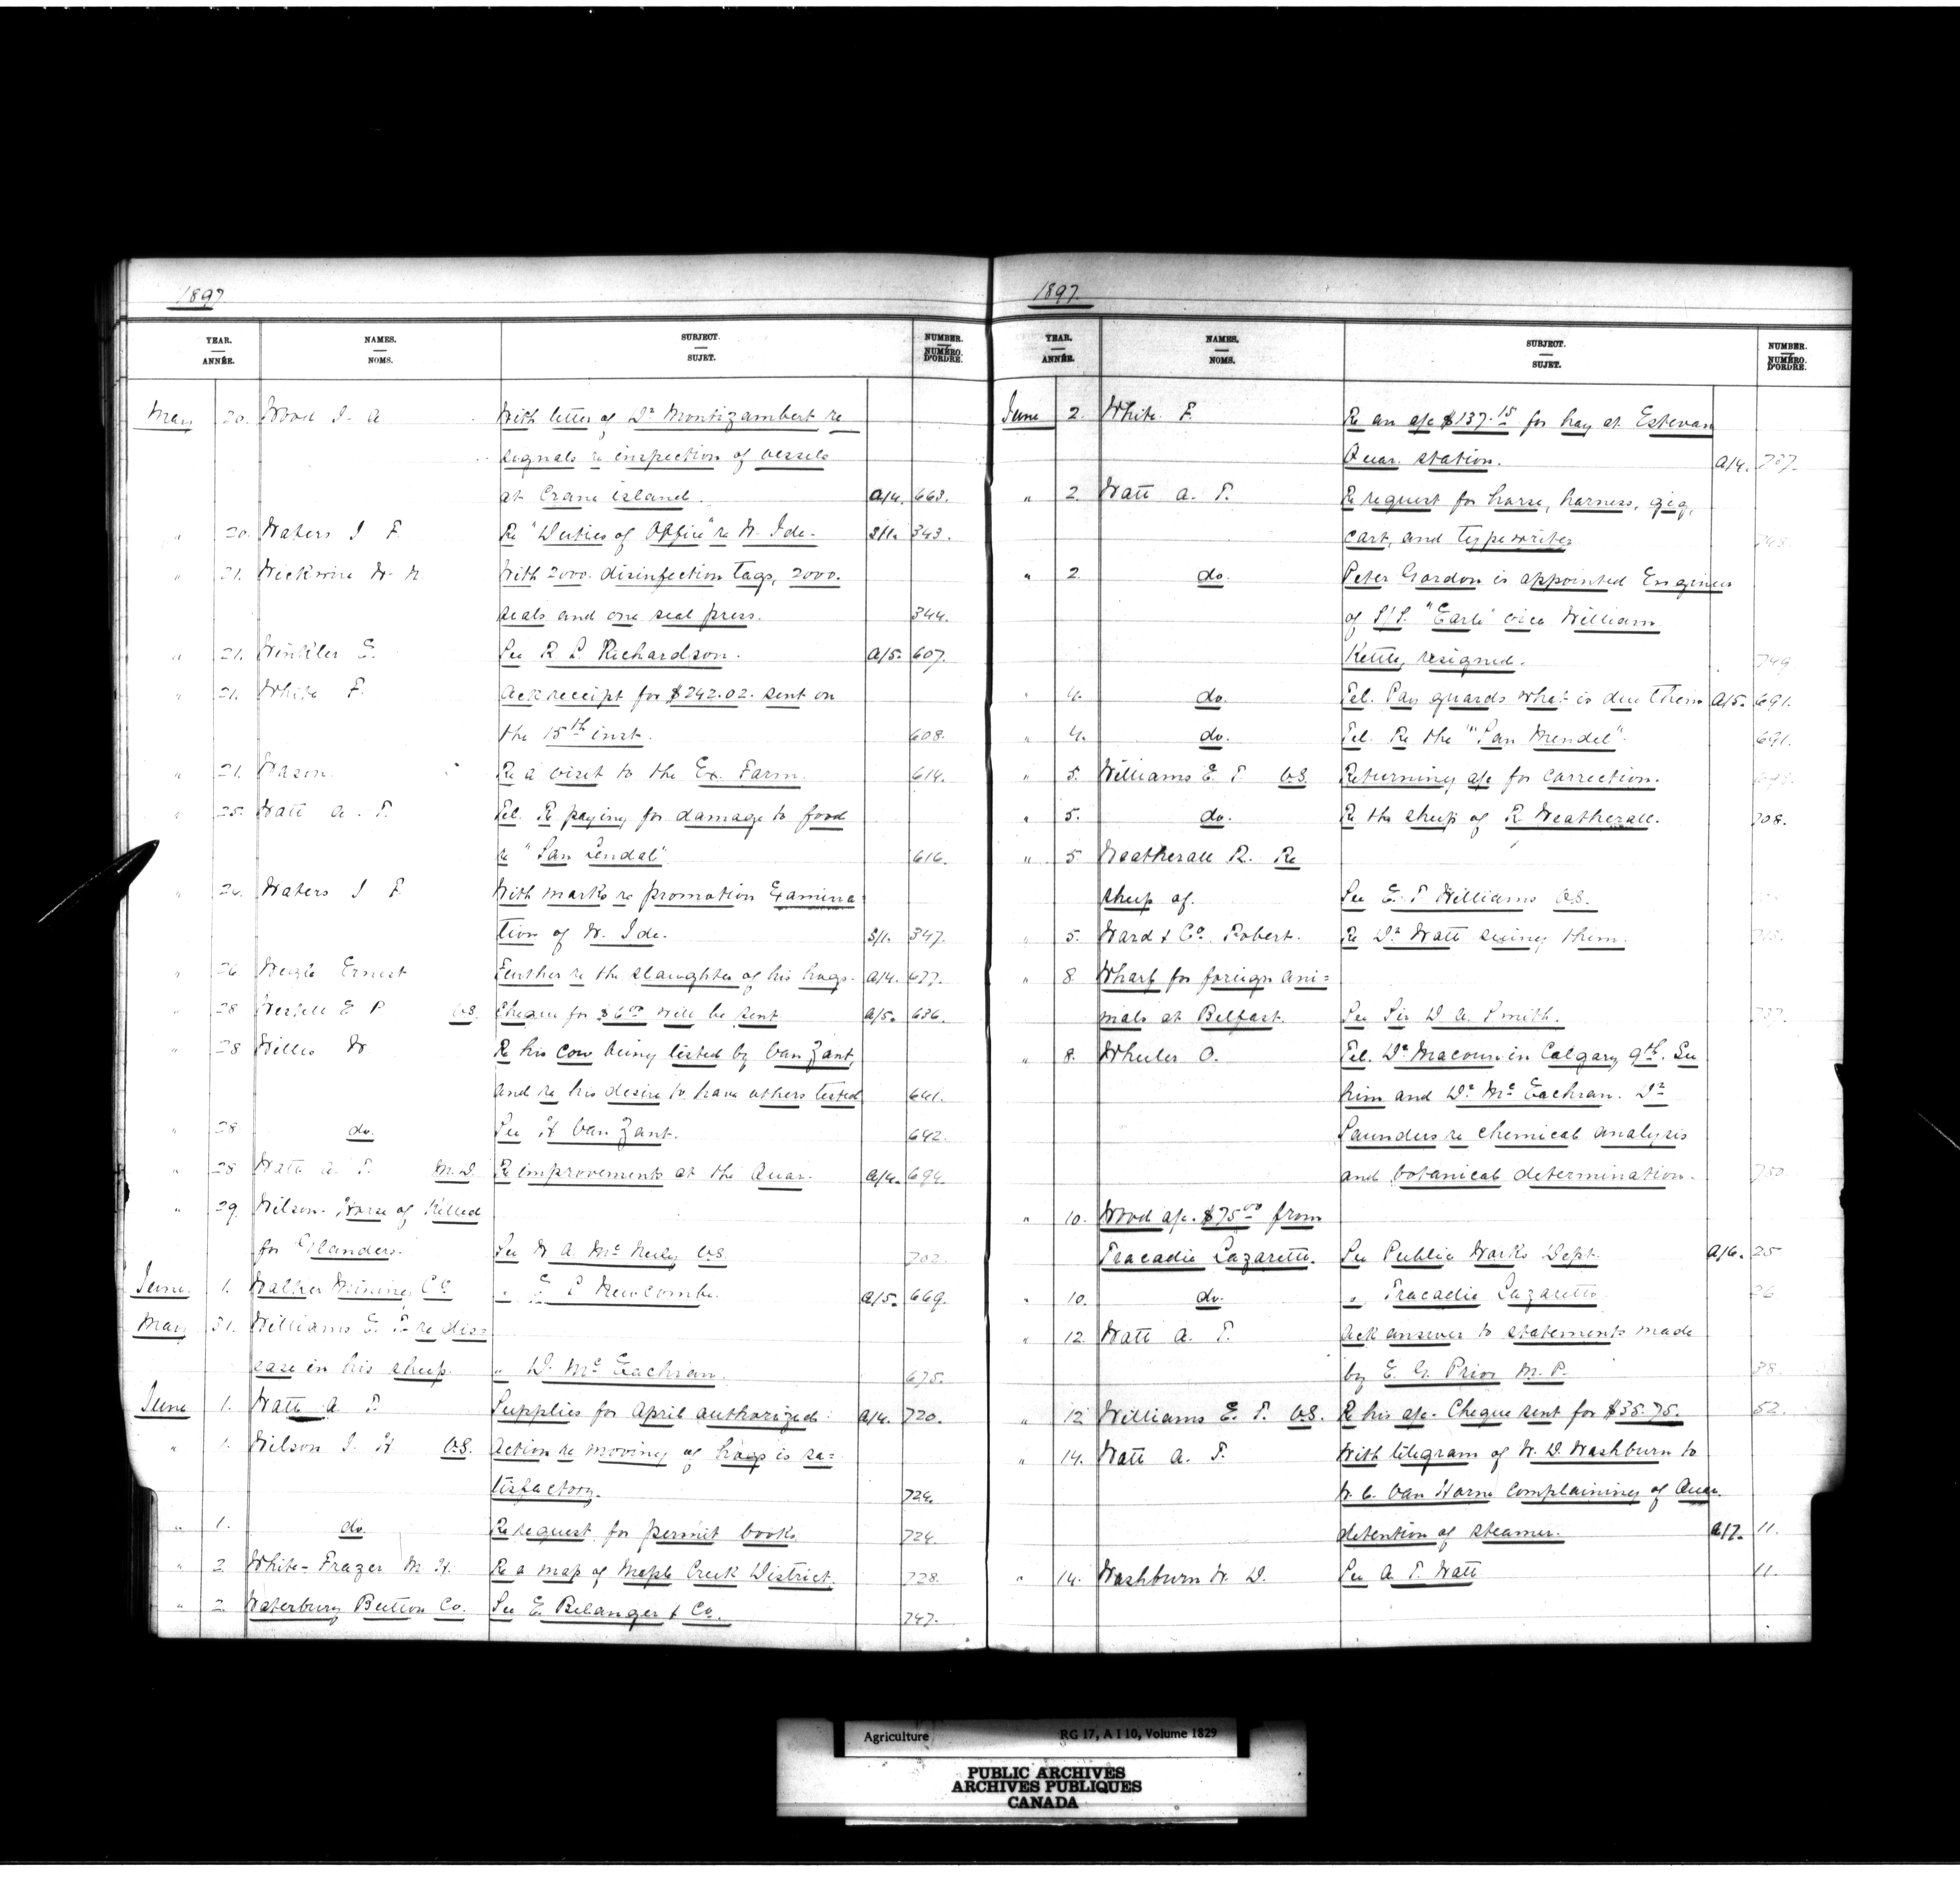 1897.
YEAR. ANNÉE. NAMES. NOMS. SUBJECT. SUJET. NUMBER. NUMÉRO. D'ORDRE.
May 20. Wood J. A. With letter of Dr Montizambert re
signals re inspection of vessels
at Crane island. A/4. 663.
" 20. Waters J F. Re "Duties of Office" re W. Ide. S/1. 343.
" 21. Wickwire W. N. With 2000. disinfection tags, 2000.
seals and one seal press. 344.
" 21. Winkler E. See R L Richardson. A/5. 607.
" 21. White F. Ack receipt for $242.02. sent on
the 15th inst. 608.
" 21. Wason. Re a visit to the Ex. Farm. 614.
" 25. Watt A. T. Tel. Re paying for damage to food
re "San 616.
" Waters J F With marks re promotion Examina
tion of W. Ide. S/1. 347.
" 26. Ernest Further re the slaughter of his hogs. A/4. 677.
" 28 E P. V.S. Cheque for $6.00 will be sent A/5. 636.
" 28 Willis W. Re his cow being tested by Van Zant,
and re his desire to have others tested 641.
" 28. do. See H Van Zant. 642.
" 28 Watt A. T. M.D. Re improvements at the Quar. A/4. 694.
" 29. Wilson. Horse of Killed
for Glanders. See W A. Mc Neily V.S. 702.
June 1. Walker Mining Co " E L Newcombe. A/5. 669.
May 31. Williams E. T. re dis=
ease in his sheep. " D. Mc Eachran. 675.
June 1. Watt A. T. Supplies for April authorized. A/4. 720.
" 1. Wilson J. H. V.S. Action re moving of hogs is sa=
tisfactory. 724.
" 1. do. Re request for permit books. 724.
" 2. White-Frazer M. H. Re a map of Maple Creek District. 728.
" 2. Waterbury Button Co. See E. Belanger & Co. 747.
1897.
YEAR. ANNÉE. NAMES. NOMS. SUBJECT. SUJET. NUMBER. NUMÉRO. D'ORDRE.
June 2. White F. Re an a/c $137.15 for hay at Estevan
Quar. station. A/4. 737.
" 2. Watt A. T. Re request for horse, harness, gig,
cart, and typewriter 748.
" 2. do. Peter Gordon is appointed Engineer
of S/S. "Earle" vice William
Kettle, resigned. 749
" 4. do. Tel. Pay guards what is due them A/5. 691.
" 4. do. Tel. Re the "San Mendel". 691.
" 5. Williams E. T V.S. Returning a/c for correction.
" 5. do. Re the sheep of R Weatherall. 708.
" 5 Weatherall R. Re
sheep of. See E. T Williams V.S.
" 5. Ward & Co. Robert. Re Dr Watt suing them. 713.
" 8 Wharf for foreign ani=
mals at Belfast. See Sir D A. Smith. 737.
" 8. Wheeler O. Tel. Dr Macoun in Calgary 9th. See
him and Dr. Mc Eachran. Dr
Saunders re chemical analysis
and botanical determination. 750.
" 10. Wood a/c. $75.00 from
Tracadie Lazaretto. See Public Works Dept. A/6. 25
" 10. do. " Tracadie Lazaretto 26
" 12. Watt A. T. Ack answer to statements made
by E. G. Prior M.P. 38.
" 12 Williams E. T. V.S. Re his a/c. Cheque sent for $35.75. 52.
" 14. Watt A. T. With telegram of W. D. Washburn to
W. C. Van Horne Complaining of Quar.
detention of steamer. A/7. 11.
" 14. Washburn W. D. See A. T. Watt 11.
Agriculture RG 17, A I 10, Volume 1829
PUBLIC ARCHIVES
ARCHIVES PUBLIQUES
CANADA